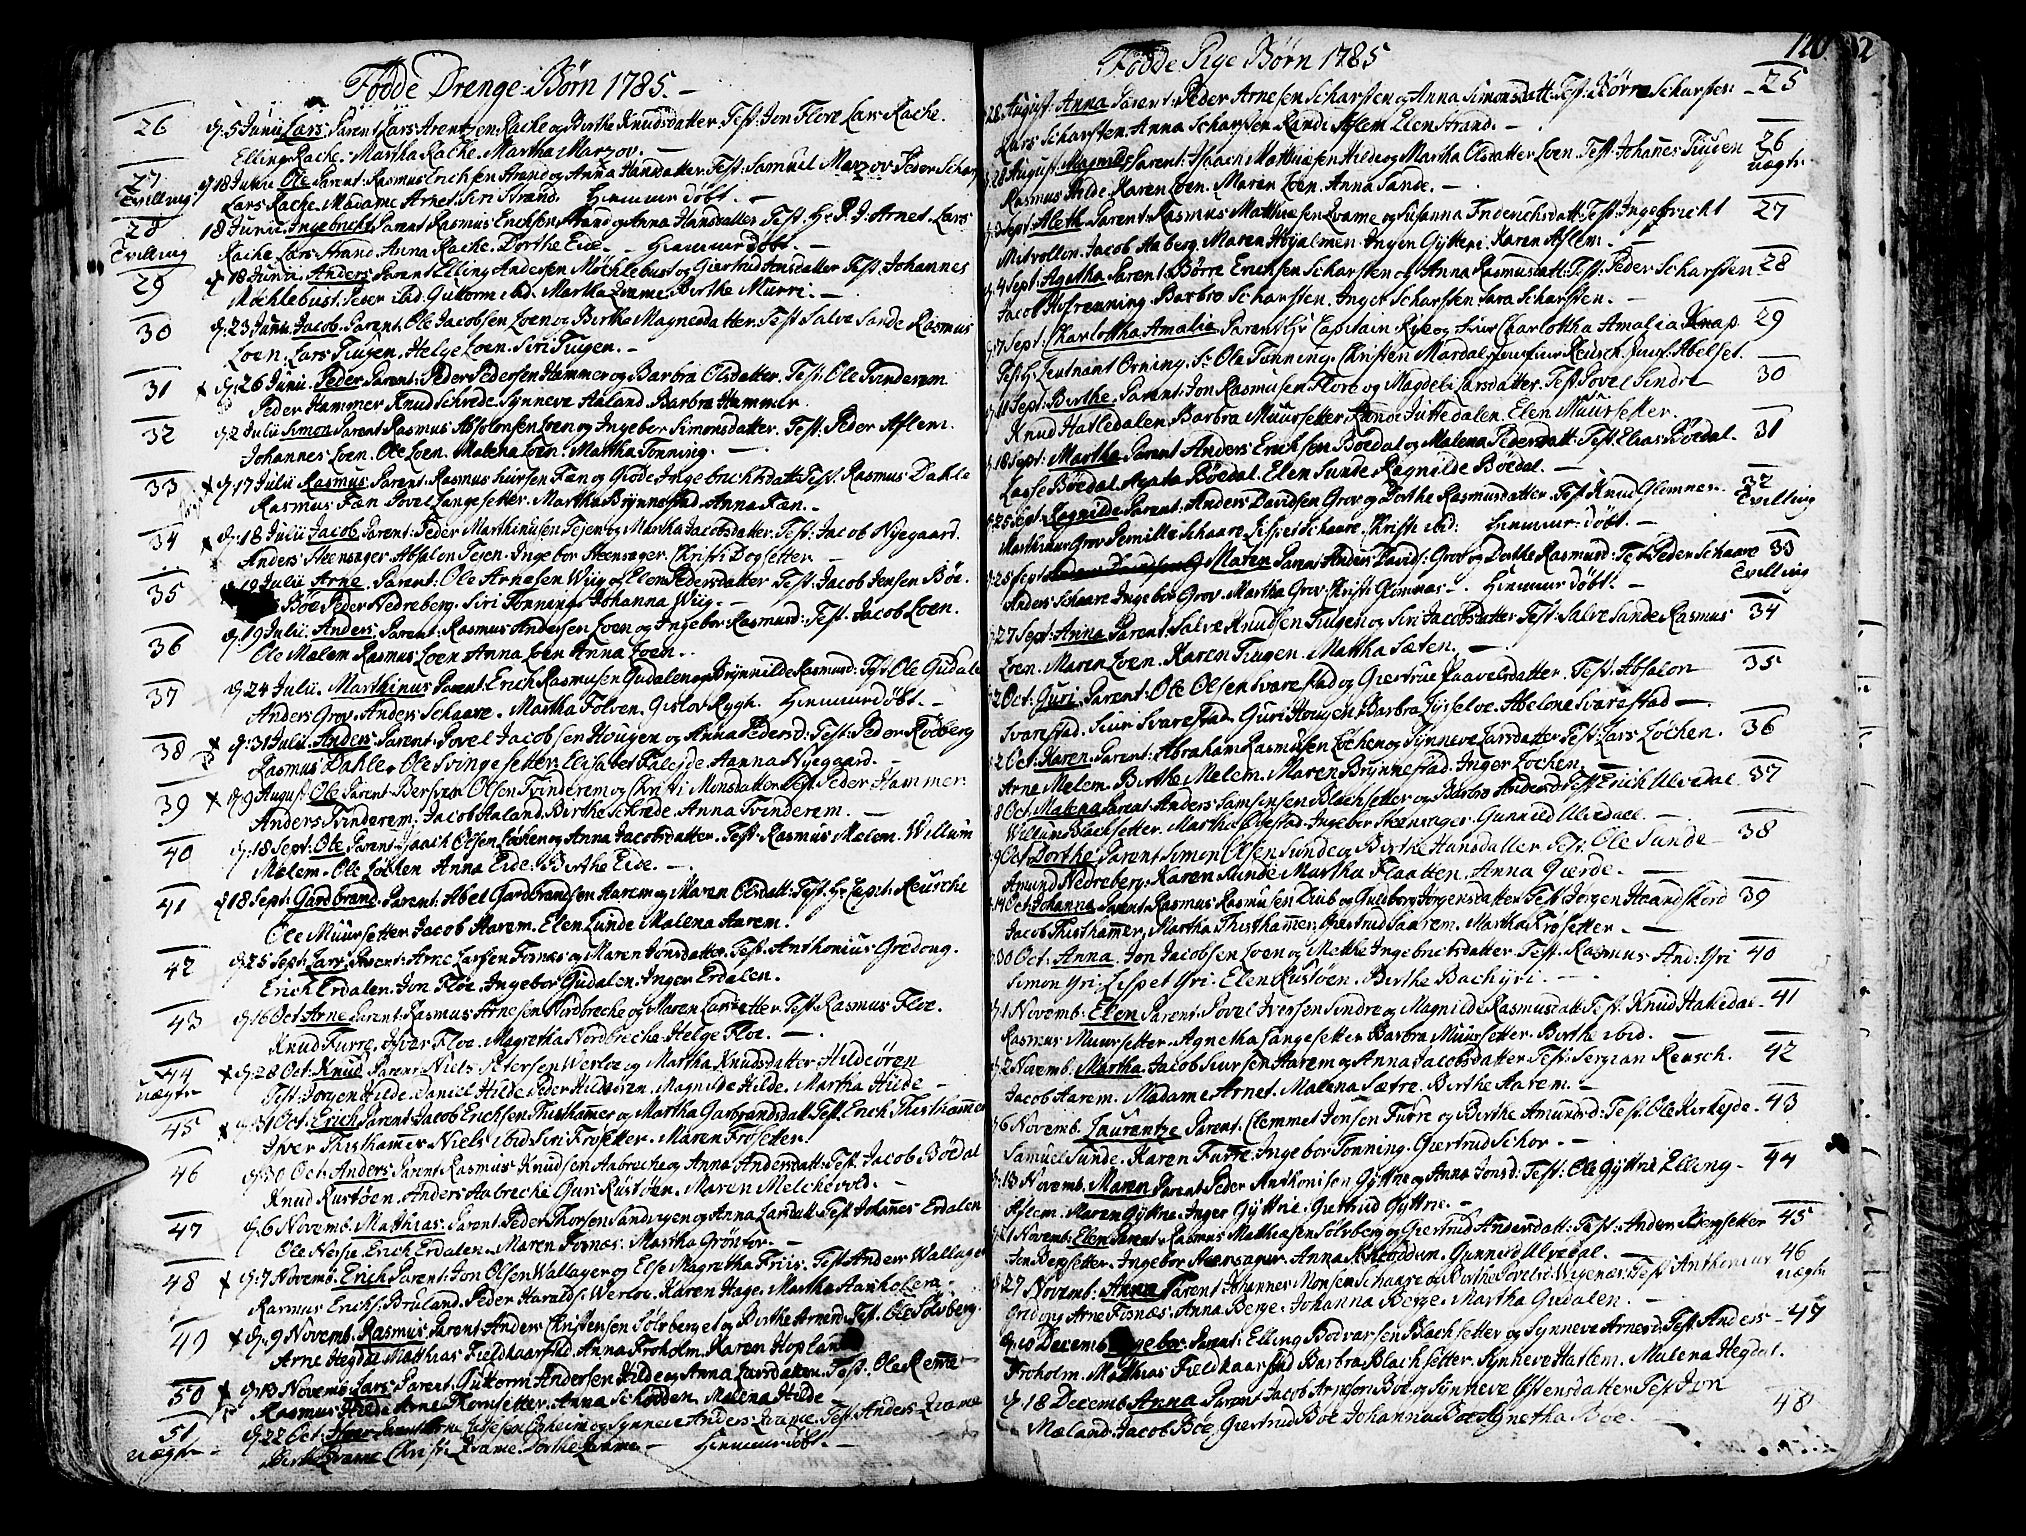 Fødde Drenge-Børn 1785.
26
d. 5 Junii Lars. Parent. Lars Arentzon Rache og Birthe Knudsdatter. Test. Jon Flore Lars Rache.
Elling Rache. Martha Rache. Martha Marzov.
27
Tvilling
d. 18 Junii Ole Parent: Rasmus Erichsen Strand og Anna Hansdatter Test: Samuel Marzov Peder Schar
Lars Rache. Madame Arnet. Siri Strand. Hiemmedøbt.
28
Tvilling
18 Junii Ingebricht Parent Rasmus Erichsen Strand og Anna Hansdatter Test. Hr P. J. Arnet. Lars
Rache Lars Strand. Anna Rache. Dorthe Eide. Hiemmedøbt.
29
d. 18 Junii. Anders Parent Elling Andersen Møchlebust og Giertrud Jensdatter Test. Johannes
Mochlebust. Peder ibid. Guttorm ibid. Martha Qvame. Birthe Murri.
30
d. 23 Junii. Jacob. Parent. Ole Jacobsen Loen og Birtha Magnesdatter. Test Salve Sande Rasmus
Loen. Lars Tiugen. Helge Loen. Siri Tiugen.
31
d. 26 Junii. Peder Parent: Peder Pedersen Hammer og Barbra Olsdatter. Test: Ole Tvinderem
Peder Hammer Knud Schrede. Synneve Aaland. Barbra Hammer.
32
d. 2 Julii Simon Parent Rasmus Absolonsen Loen og Ingebor Simonsdatter. Test. Peder Aslem.
Johannes Loen. Ole Loen. Malena Loen. Martha Tonning.
33
d. 17 Julii Rasmus Parent: Rasmus Siursen Fæn og Giøde Ingebrichtsdatt: Test. Rasmus Dahle
Rasmus Fæn Povel Langesetter. Martha Brynnestad. Anna Fæn.
34
d: 18 Julii Jacob Parent: Peder Marthinusen Teien og Martha Jacobsdatter. Test: Jacob Nyegaard.
Anders Steensager. Absalon Teien. Ingebor Steensager. Christi Dogsetter
35
19 Julii Arne. Parent: Ole Arnesen Wiig og Elen Pedersdatter Test: Jacob Jensen Bøe.
Bøe Peder Nedreberg. Siri Tonning. Johanna Wiig.
36
d. 19 Julii: Anders Parent: Rasmus Andersen Loen og Ingebor Rasmusd: Test. Jacob Loen.
Ole Melem Rasmus Loen Anna Loen Anna Loen.
37
d. 24 Julii. Marthinus Parent: Erich Rasmusen Gudalen og Brynnilde Rasmusd: Test Ole Gudale
Anders Grov. Anders Schaare. Martha Folven. Gislov Rygh. Hiemmedøbt.
38
d: 31 Julii. Anders Parent: Povel Jacobsen Hougen og Anna Pedersd: Test: Peder Rødberg
Rasmus Dahle, Ole Svingesetter. Elisabet Faleide. Hanna Nyegaard.
39
d. 9 August Ole Parent Bersver Olsen Tvinderem og Christi Monsdatter Test Peder Hammer.
Anders Tvinderem. Jacob Aaland. Birthe Schrede. Anna Tvinderem.
40
d: 18 Sept: Ole Parent: Isaach Olsen Løchen og Anna Jacobsdatter. Test. Rasmus Melem. Willum
Melem. Ole Løchen Anna Eide. Birthe Eide.
41
d 18 Sept: Gardbrand. Parent: Abel Gardbrandsen Aarem og Maren Olsdatt: Test. Hr Capit. Reusche
Ole Muursetter Jacob Aarem. Elen Lunde Malena Aarem.
42
d. 25 Sept: Lars. Parent: Arne Larsen Fosnæs og Maren Jonsdatter. Test. Anthonius Gredong.
Erich Erdalen. Jon Floe. Ingebor Gudalen. Inger Erdalen.
43
d. 16 Oct: Arne Parent: Rasmus Arnesen Nordbreche og Maren Larsdatter. Test. Rasmus Floe.
Knud Furre. Iver Floe. Magretha Nordbreche. Helge Floe.
44
uægte
d. 28 Oct: Knud Parent: Niels Petersen Werloe og Martha Knudsdatter Hildeøren
Test. Jørgen Hilde. Daniel Hilde Peder Hildeøren. Magnilde Hilde. Martha Hilde
45
d: 31 Oct: Erich Parent Jacob Erichsen Thisthammer og Martha Garbrandsdatt Test. Erich Thisthammer
Iver Thisthammer Niels ibid Siri Frøsetter. Maren Frøsetter.
46
d. 30 Oct. Anders. Parent Rasmus Knudsen Aabreche og Anna Andersdatt: Test. Jacob Bøedal
Knud Rustøen. Anders Aabreche Guri Rustøen. Maren Melchevold.
47
d. 6 Novemb. Matthias Parent. Peder Thorsen Sandvigen og Anna Larsdatt Test Johannes Erdalen
Ole Nesie Erich Erdalen. Maren Fosnæs. Martha Grøntor.
48
d: 7 Novemb. Erich Parent: Jon Olsen Wallager og Else Magretha Friis. Test Anders Wallager
Rasmus Erichs. Bruland. Peder Haralds. Werloe. Karen Hage. Martha Aarholen.
49
d: 9 Novemb. Rasmus Parent Anders Christensen Sølvberget og Birthe Arnesd: Test. Ole Sølvberg.
Arne Hegdal Matthias Fieldkaarstad. Anna Froholm. Karen Hopland
50
d: 13 Novemb. Lars. Parent. Guttorm Andersen Hilde og Anna Larsdatter. Test. Ole Remme
Rasmus Hilde Arne Thomsetter. Anna Schødden Malena Hilde
51
uægte
d. 22 Oct. Parent og Synneve Anders: Qvame. Test. Anders Qvame
Berthe Qvame Christi Qvame. Dorthe Qvame. Hiemmedøbt.
Fødde Pige Børn 1785
120.
d. 28 August: Anna Parent: Peder Arnesen Scharsten og Anna Simonsdatt: Test: Børre Scharsten 25
Lars Scharsten. Anna Scharsten Randi Aslem Elen Strand.
d. 28 August: Magnilde Parent: Isaach Matthiæsen Hilde og Martha Olsdatter Loen. Test. Johanes Tiugen 26
uægte
Rasmus Hilde. Karen Loen. Maren Loen. Anna Sande.
Sept: Aleth Parent: Rasmus Matthiæsen Qvame og Susanna Friderichsdatt: Test: Ingebricht 27
Mitvollen. Jacob Aaberg. Maren Høyalmen. Inger Gytteri. Karen Aslem.
d. 4 Sept: Agetha Parent: Børre Erichsen Scharsten og Anna Rasmusdatt: Test: Peder Scharsten 28
Jacob Hofrenning. Barbro Scharsten. Inger Scharsten Sara Scharsten.
d. 7 Sept: Charlottha Amalia Parent: Hr Capitain Rye og Frue Charlottha Amalia Knap 29
Test: Hr Lieutnant Orning. Sr. Ole Tonning. Christen Mardal. Reusch. Jomf. Abelset.
d. 11 Sept: Birthe Parent: Jon Rasmusen. Flore og Magdeli Larsdatter. Test: Povel Sindre 30
Knud Hatledalen. Barbra Muursetter. Rande Juttedalen. Elen Muursetter.
d. 18 Sept: Martha Parent: Anders Erichsen Bøedal og Malena Pedersdatt: Test: Elias Bøedal. 31
Lasse Bøedal. Agata Bøedal. Elen Sunde Ragnilde Bøedal.
d. 25 Sept: Ragnilde Parent: Anders Davidsen Grov og Dorthe Rasmusdatter. Test. Knud Glomnes. 32
Tvilling
Marthinus Grov Pernille Schaare. Lisset Schaare. Christi ibid: hiemme: døbt.
d. 25 Sept Maren Parent: Anders David: Grov og Dorthe Rasmusd: Test Peder Schaare 33
Tvilling
Anders Schaare Ingebor Grov. Martha Grov. Christi Glomnæs. Hiemmedøbt.
d. 27 Sept: Anna Parent: Salve Knudsen Tiugen og Siri Jacobsdatter Test: Salve Sande Rasmus 34
Loen. Maren Loen. Karen Tiugen. Martha Sæten.
2 Oct: Guri. Parent: Ole Olsen Svarestad og Giertrue Paavelsdatter. Test: Absalon 35
Svarestad. Siur Svarestad. Guri Hougen. Barbra Lysselve. Abelone Svarestad
2 Oct: Karen. Parent: Abraham Rasmusen Løchen og Synneve Larsdatter Test: Lars Løchen. 36
Arne Melem. Birthe Melem. Maren Brynnestad. Inger Løchen.
8 Oct. Malena Parent: Anders Samsonsen Blachsetter og Barbro Andersd: Test Erich Ulvedal 37
Willum Blachsetter. Martha Qvestad. Ingebor Steensager. Gunnild Ulvedal.
9 Oct: Dorthe Parent Simon Olsen Sunde og Birthe Hansdatter Test: Ole Sunde 38
Amund Nedreberg. Karen Sunde Martha Flaatten. Anna Gjerde.
14 Oct: Johanna Parent Rasmus Rasmusen Diub og Guldborg Jørgensdatter. Test. Jørgen Haandskord 39
Jacob Thisthammer. Martha Thisthammer. Giertrud Saarem. Martha Frøsetter.
30 Oct: Anna. Jon Jacobsen Loen og Mette Ingebretsdatter. Test. Rasmus And: Yri 40
Simon Yri. Lisspet Yri. Elen Rustøen. Birthe Bachyri.
d. 1 Novemb: Elen Parent: Povel Iversen Sindre og Magnilde Rasmusdatt: Test: Knud Hatledal 41
Rasmus Muursetter. Agnetha Langesetter Barbra Muursetter. Birthe ibid.
d. 2 Novemb. Martha. Jacob Siursen Aarem og Anna Jacobsdatter Test: Sergian Reusch. 42
Jacob Aarem. Madame Arnet. Malena Sætre. Birthe Aarem.
6 Novemb. Laurentze Parent. Clemmet Jensen Furre og Birthe Amundsd: Test. Ole Kirkeide 43
Samuel Sunde. Karen Furre. Ingebor Tonning. Giertrud Schor.
d. 13 Novemb. Maren Parent Peder Anthonisen Gyttrie og Anna Jonsd: Test: Ole Gyttrie Elling 44
Aslem. Maren Gyttrie. Inger Gyttrie. Giertrud Gyttrie.
21 Novemb: Elen Parent: Rasmus Mathiæsen Sølvberg og Giertrud Andersdatt: Test: Anders Bersetter 45
Jon Bersetter. Ingebor Steensager. Anna Schrødden. Gunnild Ulvedal.
27 Novemb: Anna Parent Johannes Monsen Schaare og Birthe Wigenæs. Test Anthonius 46
uægte
Gridong Arne Fisnæs. Anna Berge. Johanna Berge. Martha Gudalen.
d. 10 Decemb: Ingebor Parent: Elling Bodvarsen Blachsetter og Synneve Arnesd: Test. Anders 47
Froholm. Matthias Fieldkaarstad Barbra Blachsetter. Synneve Hatlem. Malena Hegdal.
d. 18 Decemb Anna Parent Jacob Arnesen Bøe og Synneve Østensdatter Test Jon 48
Mæland. Jacob Bøe, Giertrud Bøe Johanna Bøe Agnetha Bøe.